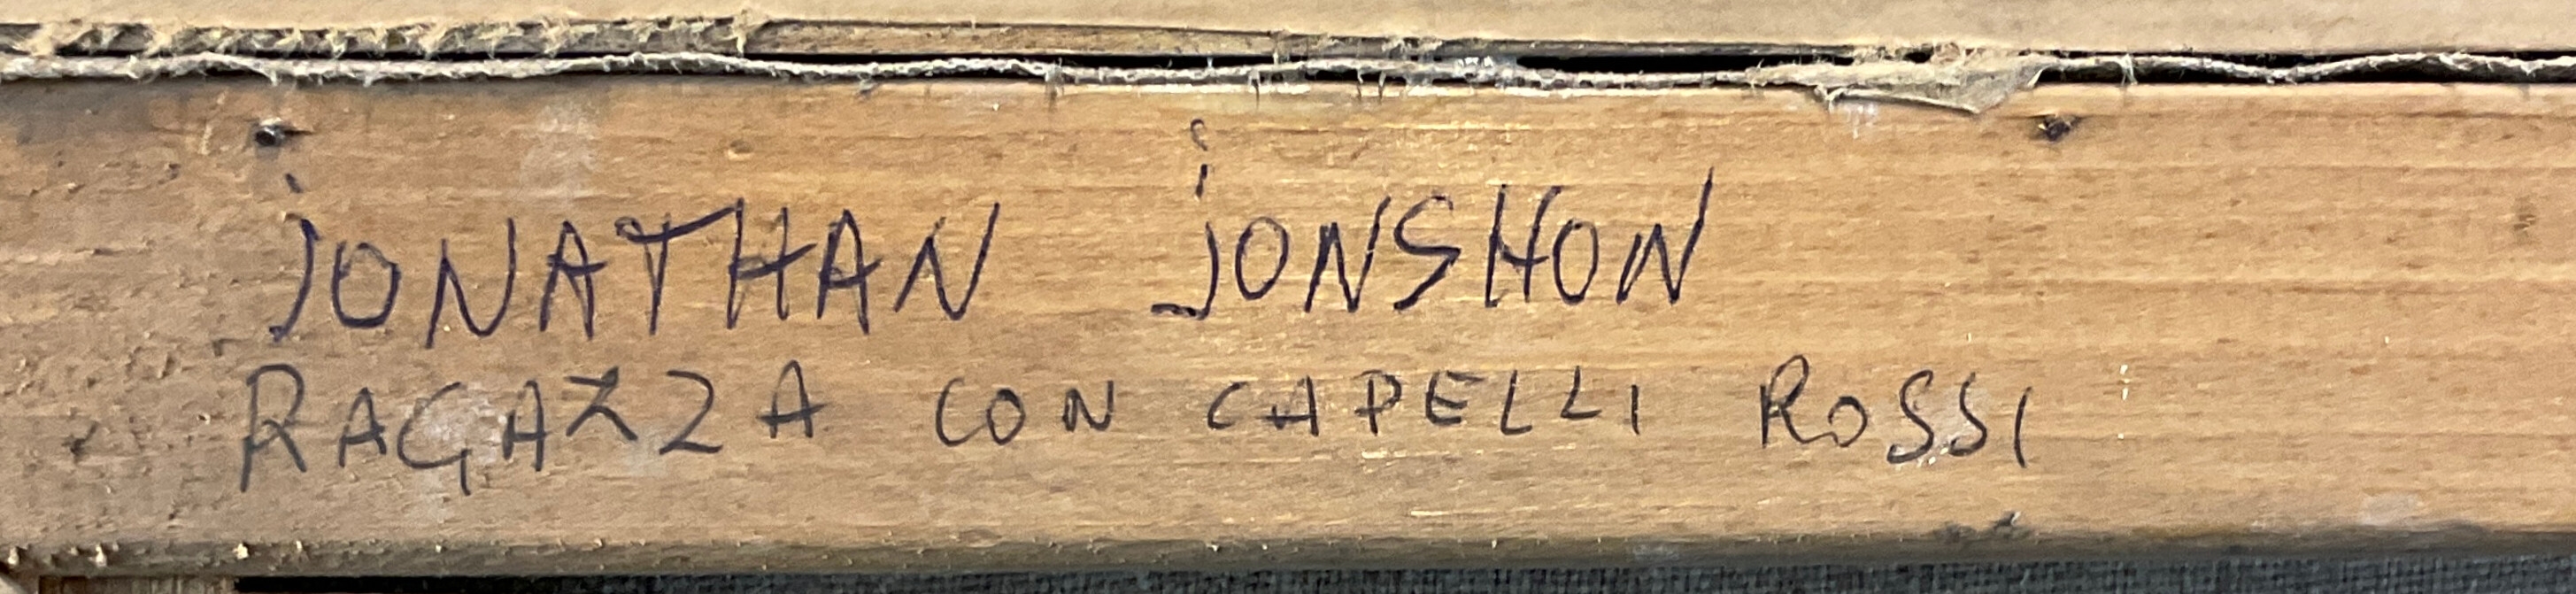 jONATHAN jONSHON
RAGAZZA CON CAPELLI ROSSI